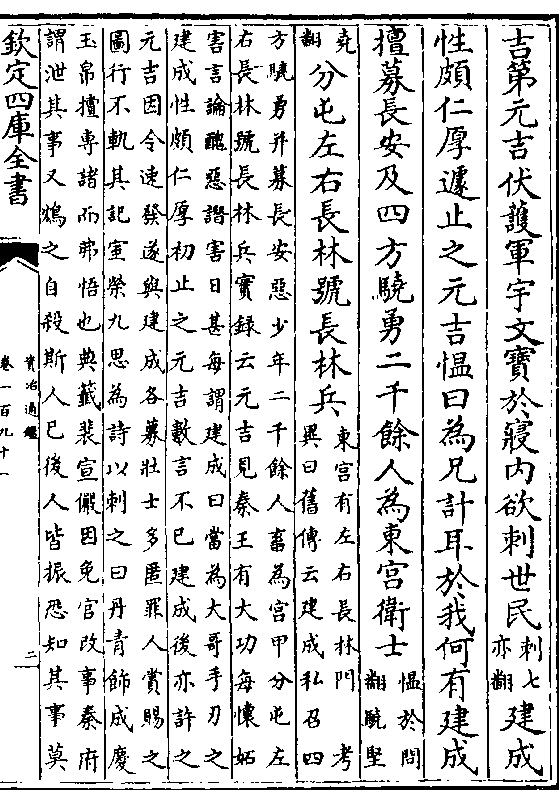 吉第元吉伏護軍宇文寶於寢内欲刺世民刺七亦翻建成
性頗仁厚遽止之元吉愠曰為兄計耳於我何有建成
擅募長安及四方驍勇二千餘人為東宫衛士愠於問翻驍堅
堯翻分屯左右長林號長林兵東宫有左右長林門考
異曰舊傳云建成私召四
方驍勇并募長安惡少年二千餘人畜為宫甲分屯左
右長林號長林兵實録云元吉見秦王有大功每懷妬
害言論醜惡譖害日甚每謂建成曰當為大哥手刃之
建成性頗仁厚初止之元吉數言不已建成後亦許之
元吉因令速發遂與建成各募壯士多匿罪人賞賜之
圖行不軌其記室榮九思為詩以刺之曰丹青飾成慶
玉帛擅專諸而弗悟也典籖裴宣儼因免官改事秦府
謂泄其事又鴆之自殺斯人已後人皆振恐知其事莫
欽定四庫全書
資治通鑑
卷一百九十一
二